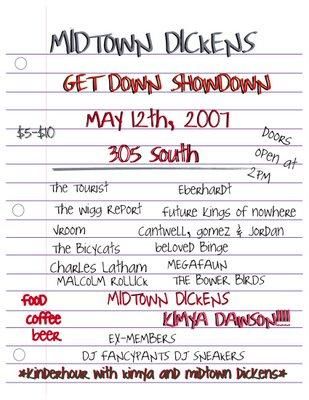 MIDTOWN DICKENS
GET DOWN SHOWDOWN
MAY 12th, 2007
$5-$10
305 South
DOORS
OPEN at
2PM
The Tourist
Eberhardt
The Wigg Report
Future Kings of Nowhere
Vroom
Cantwell, Gomez & Jordan
The Bicycats
Beloved Binge
Charles Latham
MEGAFAUN
MALCOLM ROLLICK
THE BOWER BIRDS
FOOD
MIDTOWN DICKENS
coffee
KIMYA DAWSON!!!!!
beer
EX-MEMBERS
DJ FANCYPANTS DJ SNEAKERS
*Kinderhour with Kimya and Midtown Dickens*